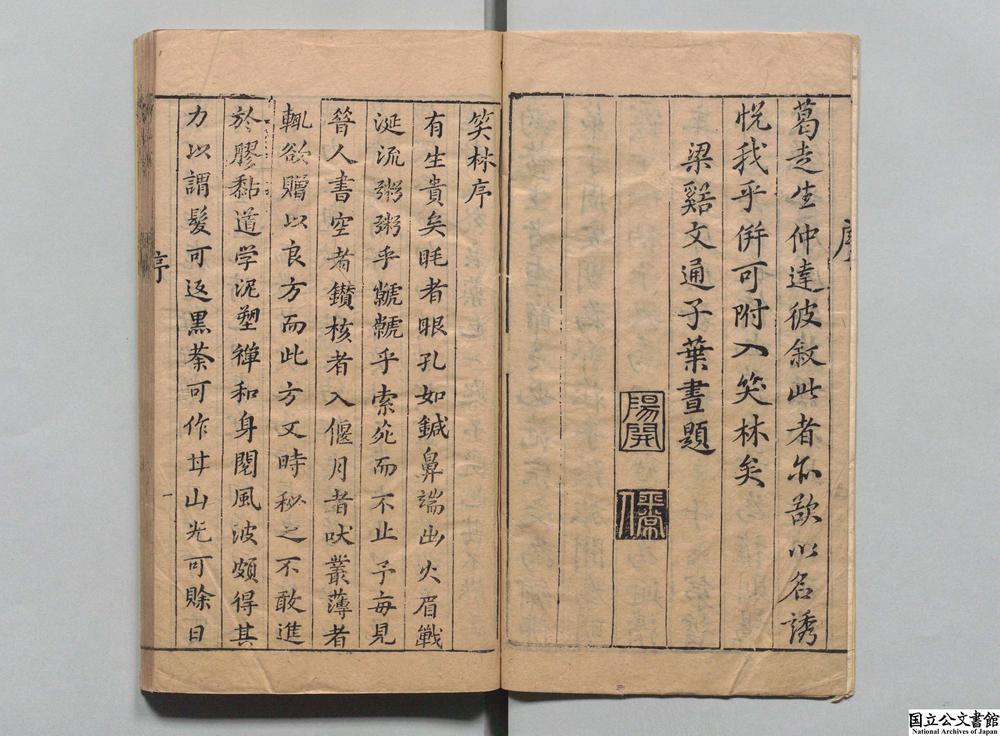 序
葛走生仲達彼敘此者亦欲以名誘
悅我乎併可附入笑林矣
梁谿文通子葉晝題
陽開
笑林序
有生貴矣眊者眼孔如鍼鼻端出火眉戰
涎流粥粥乎虩虩乎索笂而不止予每見
晉人書空者鑚核者入偃月者吠叢薄者
輒欲贈以良方而此方又時秘之不敢進
於膠黏道学泥塑禪和身閱風波頗得其
力以謂髮可返黒荼可作甘山光可賒日
序
一
国立公文書館
National Archives of Japan